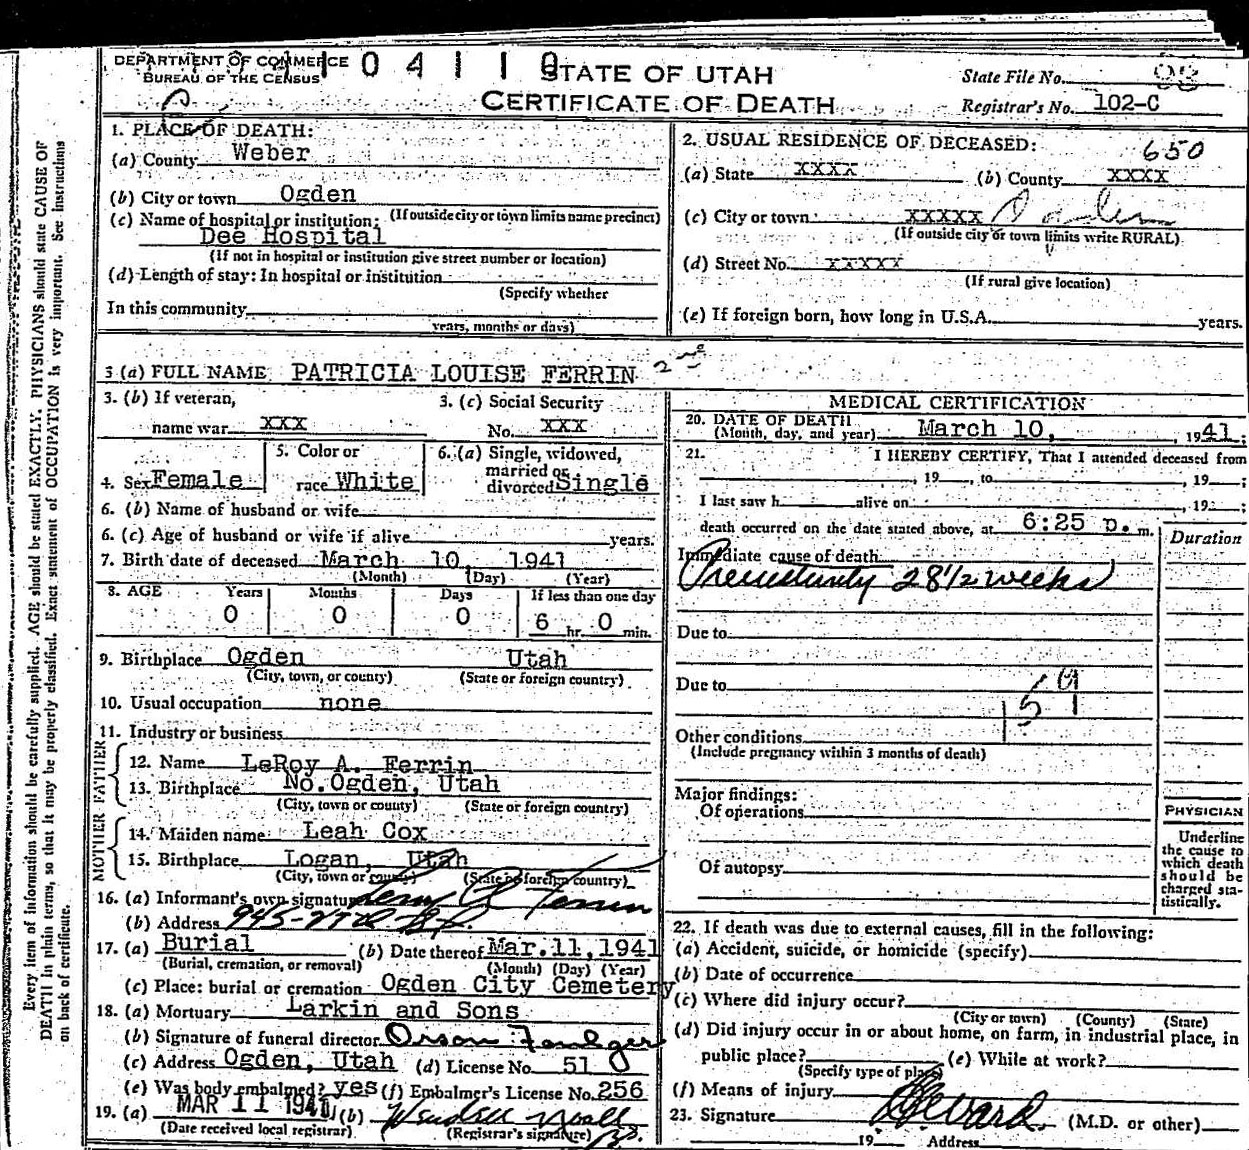 DEPARTMENT OF COMMERCE
BUREAU OF THE CENSUS
1 0 4 1 1 0
STATE OF UTAH
CERTIFICATE OF DEATH
State File No. 98
Registrar's No. 102-C
1. PLACE OF DEATH:
(a) County Weber
(b) City or town Ogden
(If outside city or town limits name precinct)
(c) Name of hospital or institution:
Dee Hospital
(If not in hospital or institution give street number or location)
(d) Length of stay: In hospital or institution
(Specify whether
In this community
years, months or days)
2. USUAL RESIDENCE OF DECEASED:
650
(a) State XXXX (b) County XXXX
(c) City or town XXXXX Ogden
(If outside city or town limits write RURAL)
(d) Street No. XXXXX
(If rural give location)
(e) If foreign born, how long in U.S.A. years.
3 (a) FULL NAME PATRICIA LOUISE FERRIN 2nd
3. (b) If veteran,
name war XXX
3. (c) Social Security
No. XXX
4. Sex Female
5. Color or
race White
6. (a) Single, widowed,
married or
divorced Single
6. (b) Name of husband or wife
6. (c) Age of husband or wife if alive years.
7. Birth date of deceased March 10, 1941
(Month) (Day) (Year)
8. AGE Years Months Days If less than one day
0 0 0 6 hr. 0 min.
9. Birthplace Ogden Utah
(City, town, or county) (State or foreign country)
10. Usual occupation none
11. Industry or business
FATHER
12. Name LeRoy A. Ferrin
13. Birthplace No. Ogden, Utah
(City, town or county) (State or foreign country)
MOTHER
14. Maiden name Leah Cox
15. Birthplace Logan, Utah
(City, town or county) (State or foreign country)
16. (a) Informant's own signature Ferrin
(b) Address 945-
17. (a) Burial (b) Date thereof Mar. 11, 1941
(Burial, cremation, or removal) (Month) (Day) (Year)
(c) Place: burial or cremation Ogden City Cemetery
18. (a) Mortuary Larkin and Sons
(b) Signature of funeral director Orson
(c) Address Ogden, Utah (d) License No. 51
(e) Was body embalmed? yes (f) Embalmer's License No. 256
19. (a) MAR 11 1941 (b) Wendell
(Date received local registrar) (Registrar's signature)
MEDICAL CERTIFICATION
20. DATE OF DEATH
(Month, day, and year) March 10, , 1941;
21. I HEREBY CERTIFY, That I attended deceased from
, 19 , to , 19 ;
I last saw h alive on , 19 ;
death occurred on the date stated above, at 6:25 p. m.
Duration
Immediate cause of death
Prematurity 28 1/2 weeks
Due to
Due to
159
Other conditions
(Include pregnancy within 3 months of death)
Major findings:
Of operations
Of autopsy
PHYSICIAN
Underline
the cause to
which death
should be
charged sta-
tistically.
22. If death was due to external causes, fill in the following:
(a) Accident, suicide, or homicide (specify)
(b) Date of occurrence
(c) Where did injury occur?
(City or town) (County) (State)
(d) Did injury occur in or about home, on farm, in industrial place, in
public place? (e) While at work?
(Specify type of place)
(f) Means of injury
23. Signature (M.D. or other)
19 Address
Every item of information should be carefully supplied. AGE should be stated EXACTLY. PHYSICIANS should state CAUSE OF
DEATH in plain terms, so that it may be properly classified. Exact statement of OCCUPATION is very important. See instructions
on back of certificate.